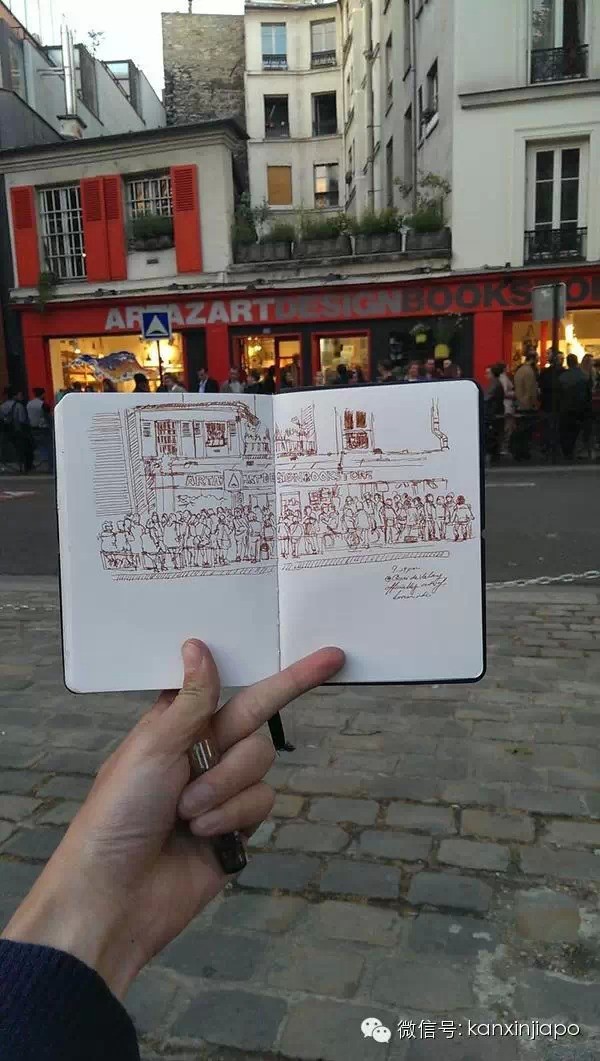 ARTAZARTDESIGNBOOKSTO
ARTAZ ART DESIGN BOOKSTORE
@Quai de Valmy
微信号: kanxinjiapo